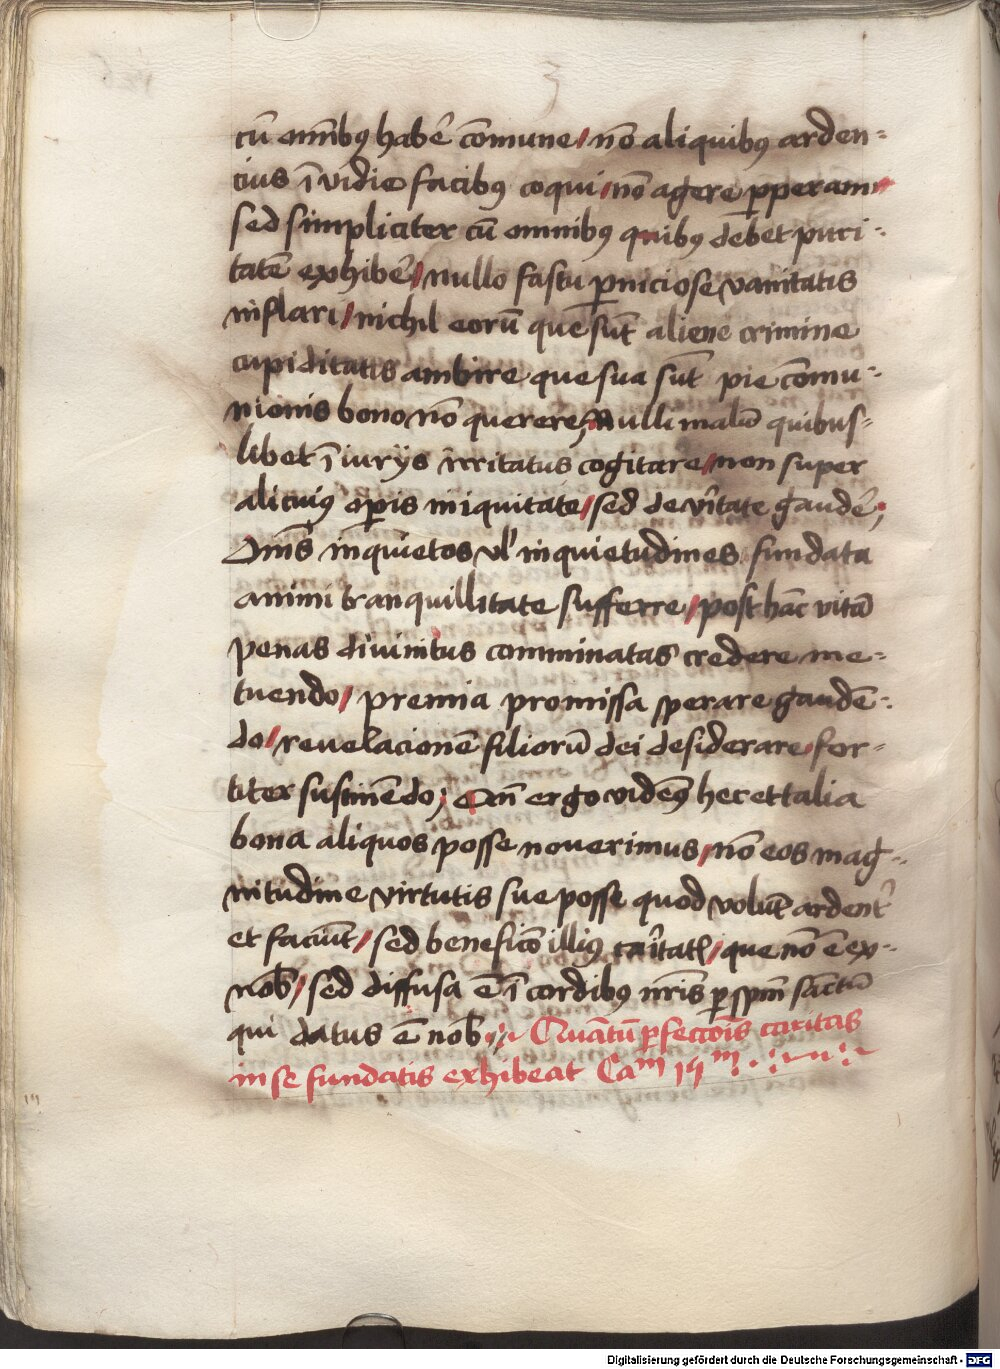 cū omībꝰ habē cōmune / nō aliquibꝰ arden=
cius īvidie facibꝰ coqui / nō agere ꝑperam /
sed simpliciter cū omnibꝰ quibꝰ debet puri=
tatē exhibē / nullo fastu ꝑniciose vanitatis
inflari / nichil eorū que sūt aliene crimine
cupiditatis ambire que sua sūt pie cōmu=
nionis bono nō querere / Nulli malū quibus=
libet īiuriis irritatus cogitare / non super
alicuiꝰ oꝑis iniquitate / sed de vītate gaudē ;
Oīns inquietos vl' inquietudines fundata
animi tranquillitate sufferre / post hāc vitā
penas divinitus comminatas credere me=
tuendo / premia promissa sperare gaudē=
do / revelacionē filiorū dei desiderare / for=
titer sustinēdo ; Cū ergo vidēꝰ hec et talia
bona aliquos posse noverimus / nō eos mag=
nitudine virtutis sue posse quod volūt ardent'
et faciūt / sed beneficō illiꝰ caītatꝭ / que nō ē ex=
nob / sed diffusa ē ī cordibꝰ nr̄is ꝑ spm̄ sāctū
qui datus ē nob ; Quātū ꝑfecciōis caritas
in se fundatis exhibeat Caᵐ iijᵐ